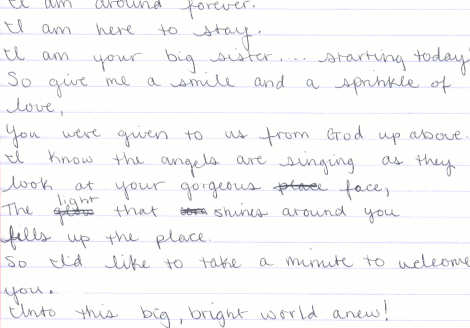 I am around forever.
I am here to stay.
I am your big sister.... starting today
So give me a smile and a sprinkle of
love,
You were given to us from God up above.
I know the angels are singing as they
look at your gorgeous place face,
light
The that shines around you
fills up the place.
So I'd like to take a minute to welcome
you.
Unto this big, bright world anew!